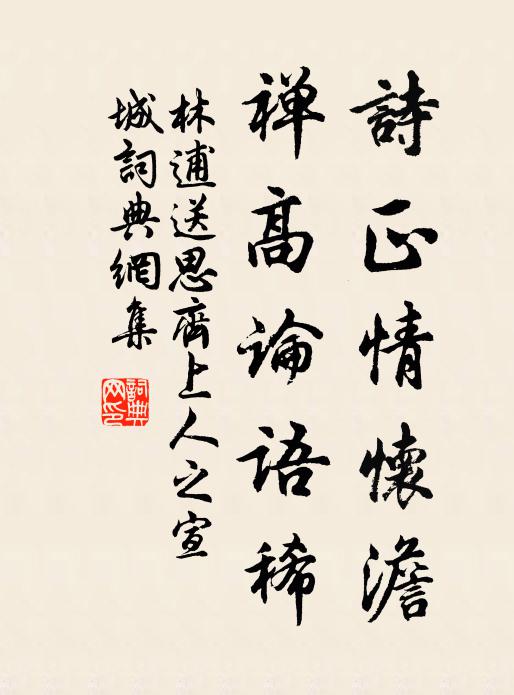 詩正情懷澹
禅高論語稀
林逋送思齊上人之宣
城詞典網集
詞典网印